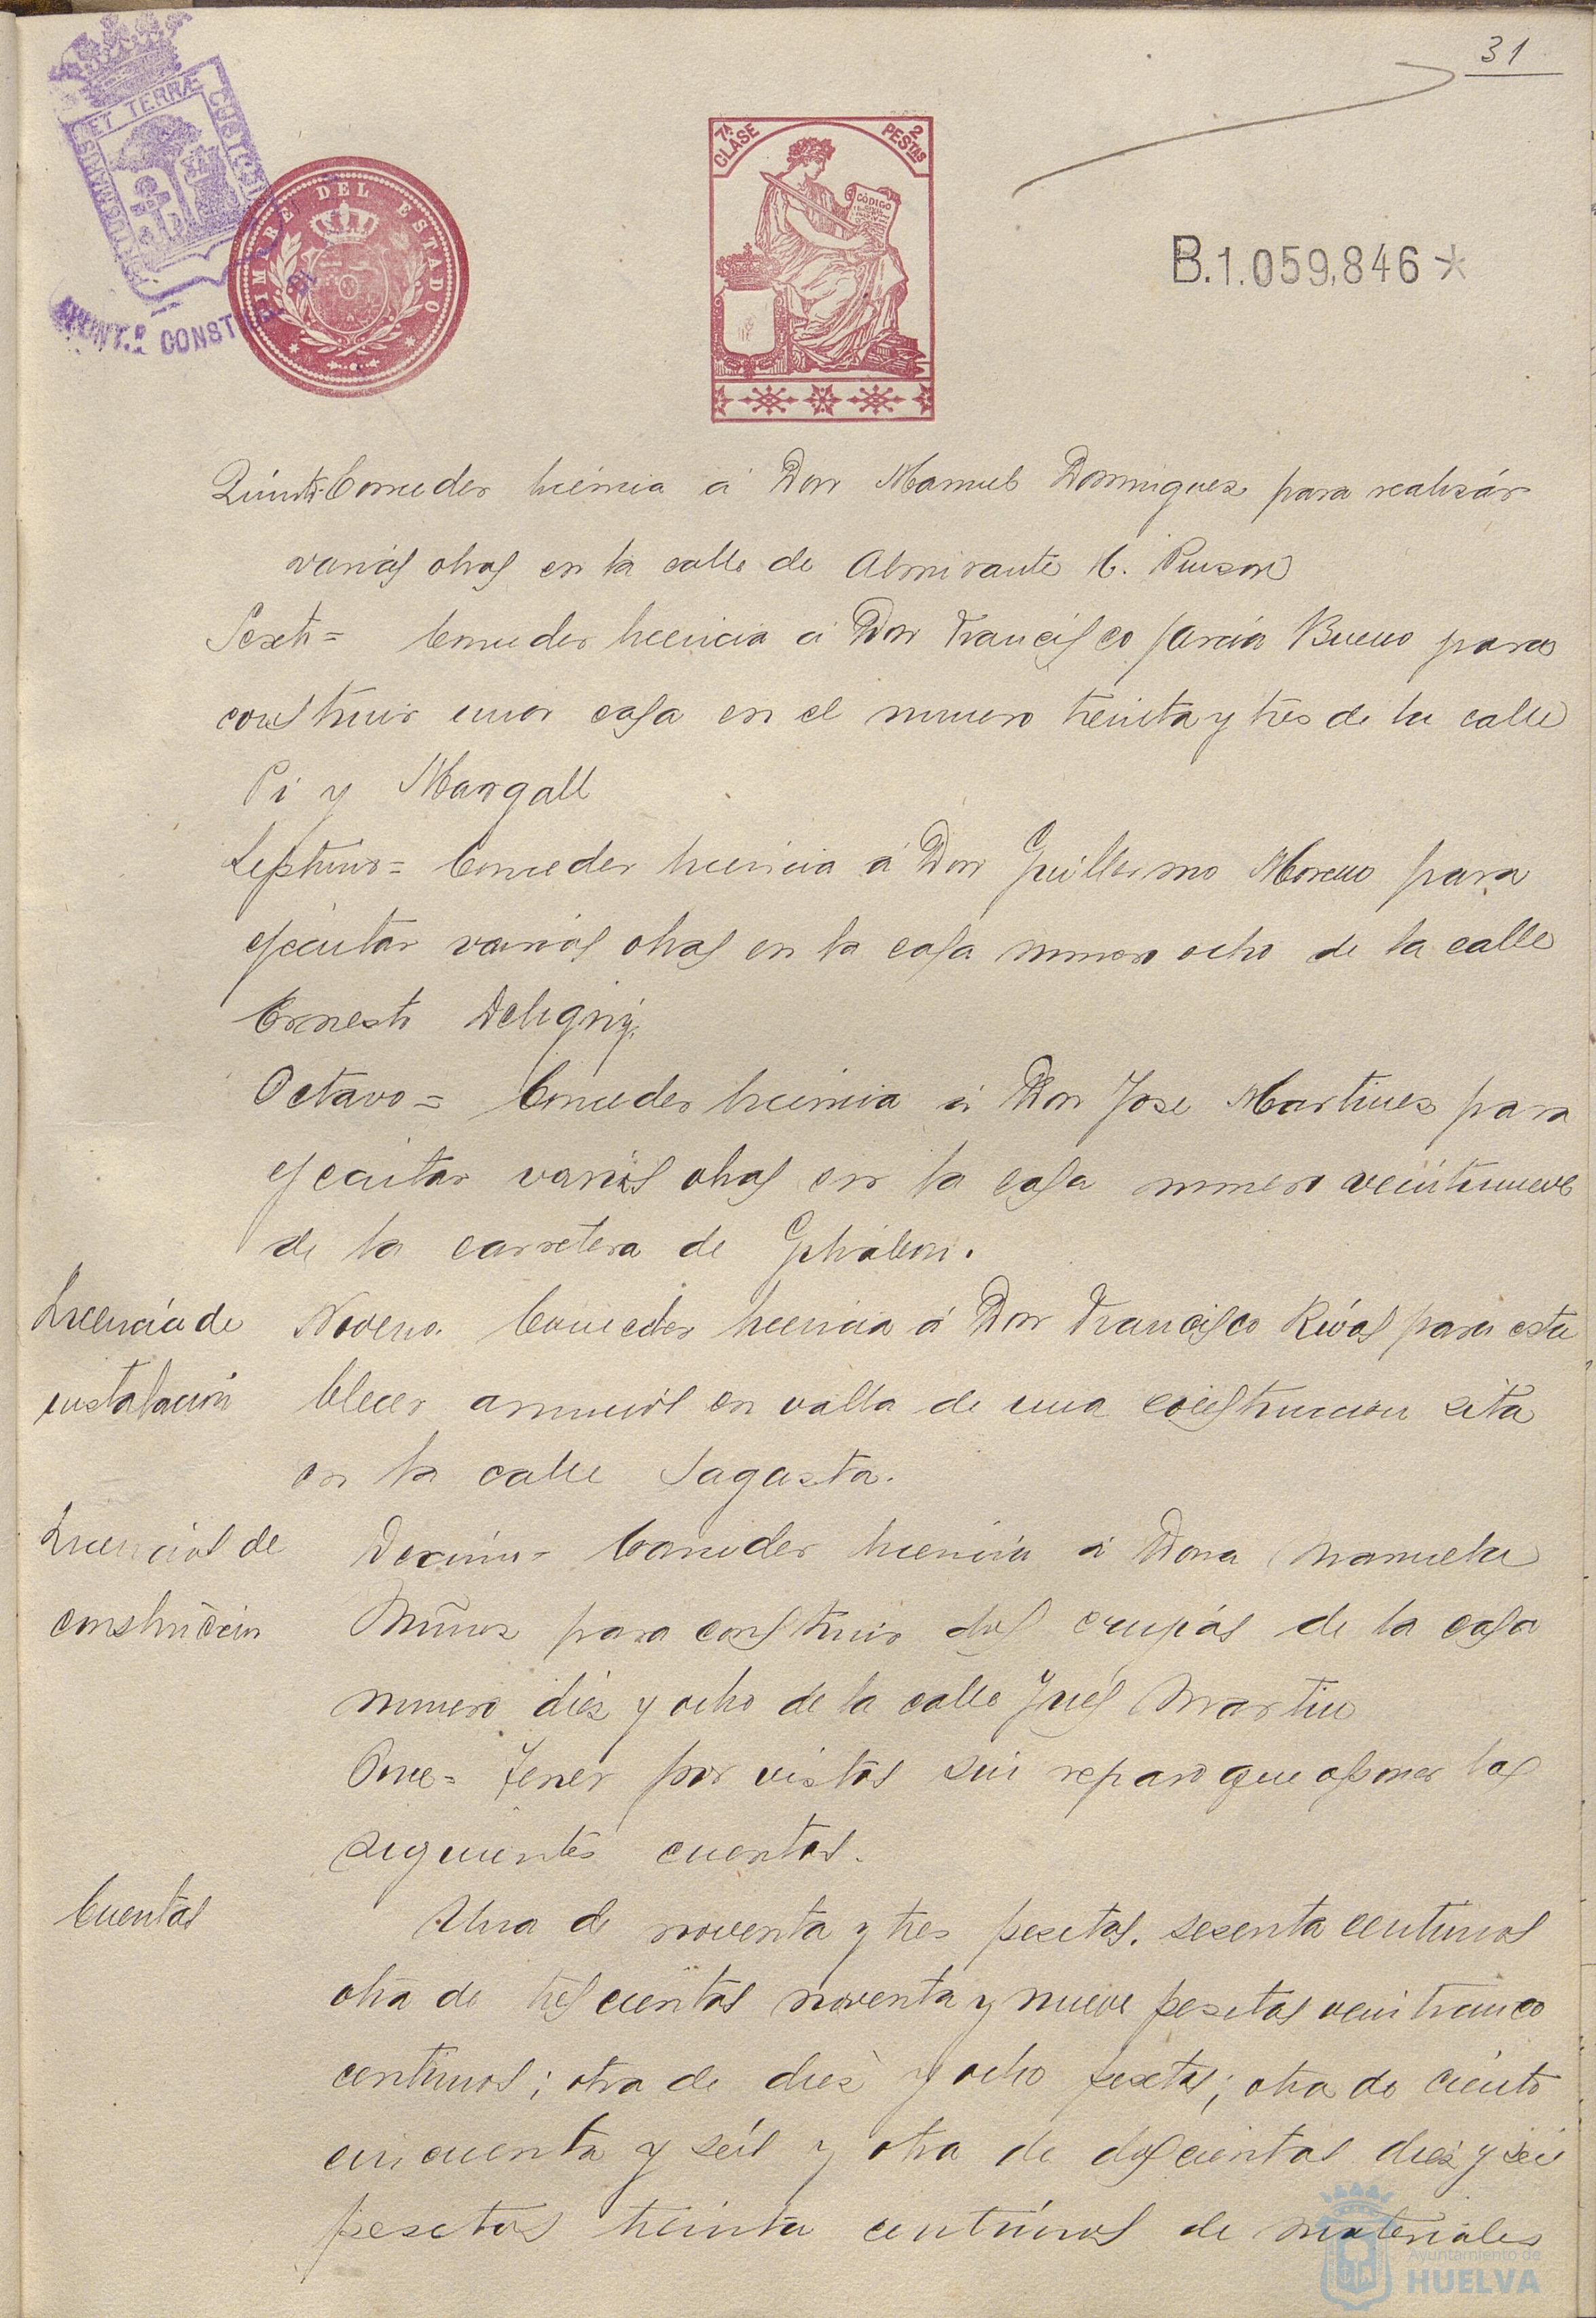 31
PORTUS MARIS ET TERRÆ CUSTODIA
AYUNT.º CONSTL. DE
TIMBRE DEL ESTADO
7ª CLASE
2 PESTAS
CÓDIGO
B.1.059,846*
Quinto. Conceder licencia á Don Manuel Dominguez para realizár
varias obras en la calle de Almirante H. Pinzon
Sexto= Conceder licencia á Don Francisco Garcia Bueno para
construir una casa en el numero treinta y tres de la calle
Pi y Margall
Septimo= Conceder licencia á Don Guillermo Moreno para
ejecutar varias obras en la casa numero ocho de la calle
Ernesto Deligny.
Octavo= Conceder licencia á Don Jose Martinez para
ejecutar varias obras en la casa numero veintinueve
de la carretera de Gibraleon.
Licencia de
instalacion
Noveno. Conceder licencia á Don Francisco Rivas para esta
blecer anuncios en valla de una construccion sita
en la calle Sagasta.
Licencias de
construccion
Decimo= Conceder licencia á Dona Manuela
Muñoz para construir dos crujias de la casa
numero diez y ocho de la calle Ines Martin
Once= Tener por vistas sin reparo que oponer las
siguientes cuentas.
Cuentas
Una de noventa y tres pesetas. sesenta centimos
otra de trescientas noventa y nueve pesetas veinticinco
centimos; otra de diez y ocho pesetas; otra de ciento
cincuenta y seis y otra de doscientas diez y seis
pesetas treinta centimos de materiales
Ayuntamiento de
HUELVA